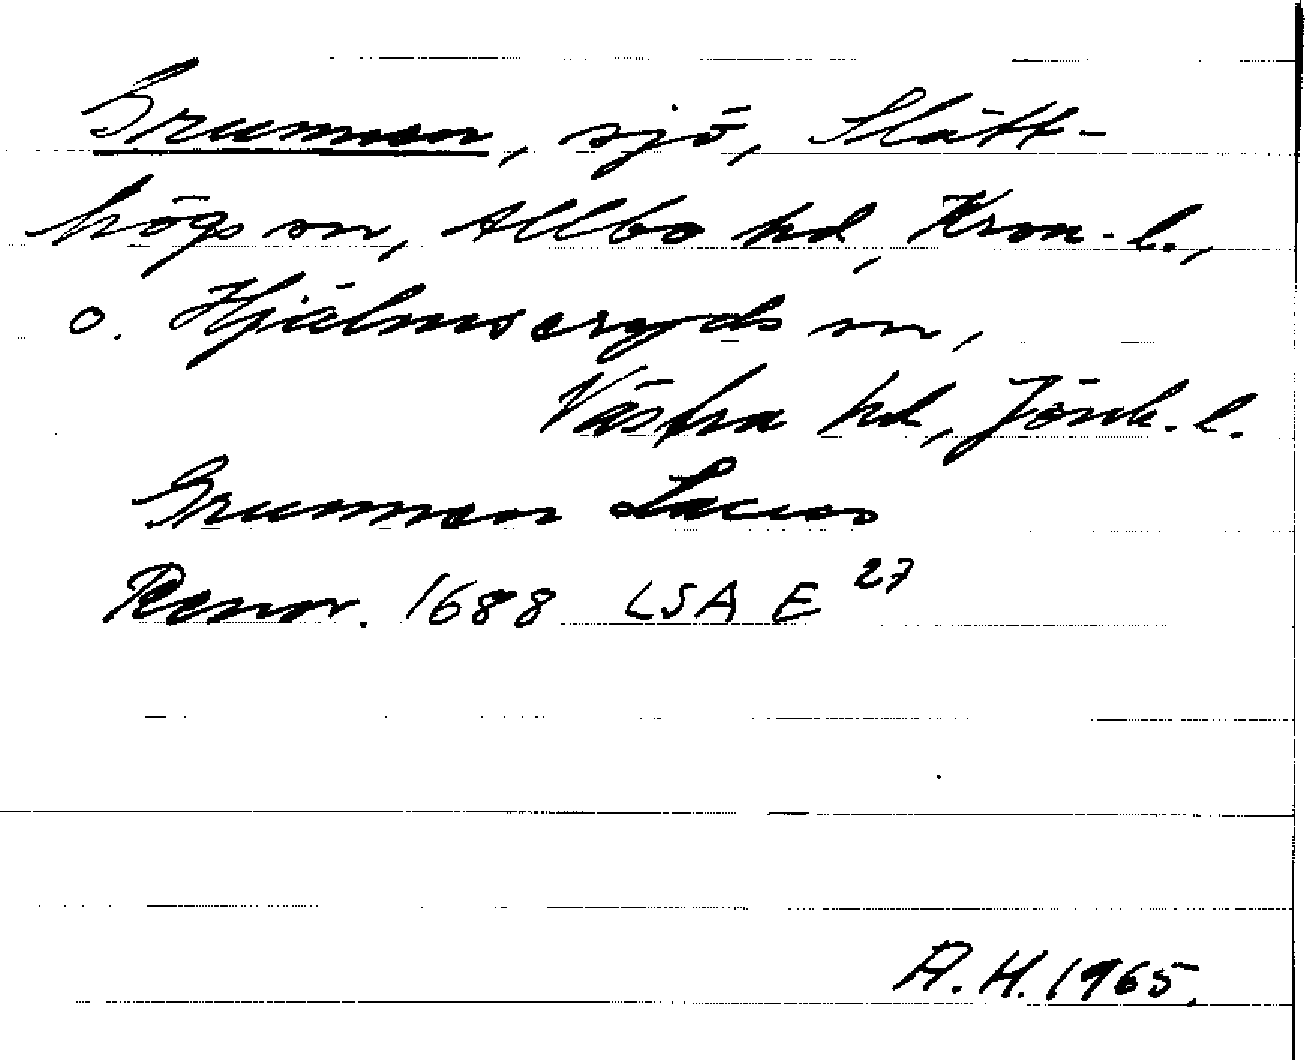 Grumman, sjö, Slätt-
högs sn, Allbo hd, Kron. l.,
o. Hjälmseryds sn,
Västra hd, Jönk. l.
Grumman Lacus
Renov. 1688 LSA E 27
A. H. 1965.